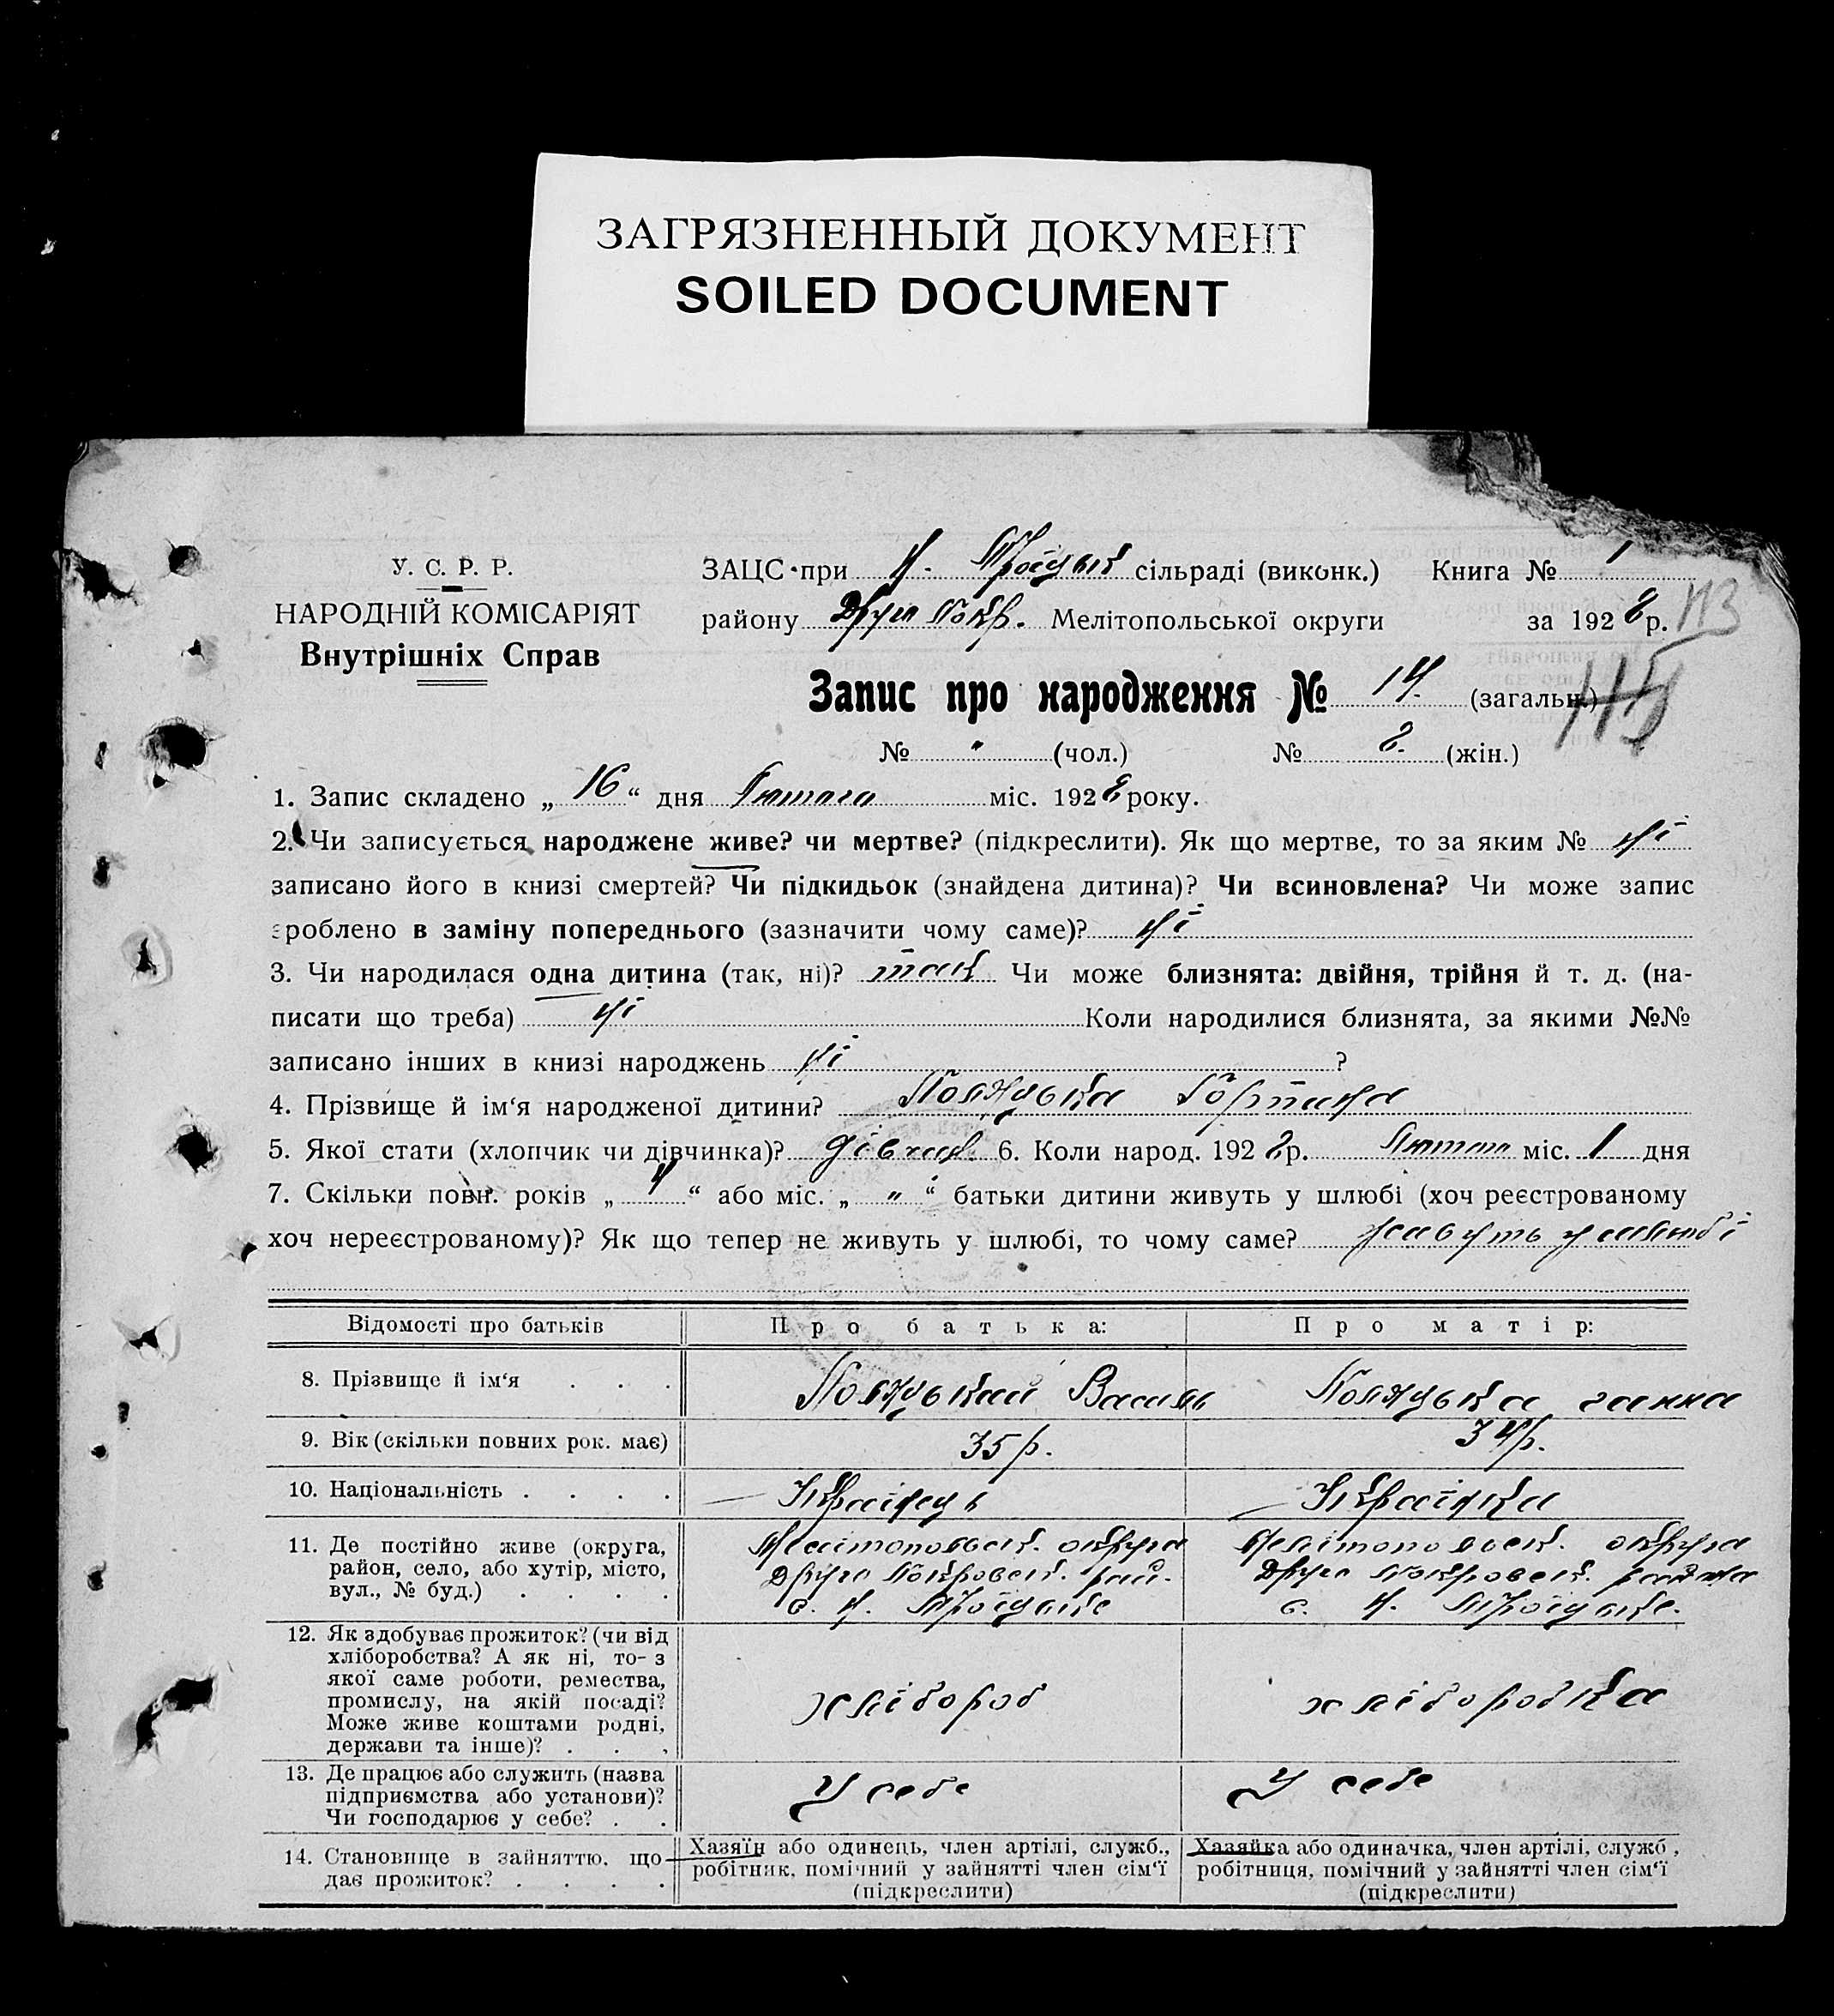 ЗАГРЯЗНЕННЫЙ ДОКУМЕНТ
SOILED DOCUMENT
У. С. Р. Р.
НАРОДНІЙ КОМІСАРІЯТ
Внутрішніх Справ
ЗАЦС при Н. Троїцьк сільраді (виконк.) Книга № 1
району Друго Покр. Мелітопольської округи за 1928 р.
113
115
Запис про народження № 14. (загальн.)
№ " (чол.) № 8. (жін.)
1. Запис складено „ 16 “ дня Лютого міс. 1928 року.
2. Чи записується народжене живе? чи мертве? (підкреслити). Як що мертве, то за яким № ні
записано його в книзі смертей? Чи підкидьок (знайдена дитина)? Чи всиновлена? Чи може запис
зроблено в заміну попереднього (зазначити чому саме)? ні
3. Чи народилася одна дитина (так, ні)? так Чи може близнята: двійня, трійня й т. д. (на-
писати що треба) ні Коли народилися близнята, за якими №№
записано інших в книзі народжень ні ?
4. Прізвище й ім‘я народженої дитини?
5. Якої стати (хлопчик чи дівчинка)? дівчин. 6. Коли народ. 1928 р. Лютого міс. 1 дня
7. Скільки повн. років „ 4 “ або міс. „ " “ батьки дитини живуть у шлюбі (хоч реєстрованому
хоч нереєстрованому)? Як що тепер не живуть у шлюбі, то чому саме? живуть у шлюбі
Відомості про батьків Про батька: Про матір:
8. Прізвище й ім‘я . . . Василь ганна
9. Вік (скільки повних рок. має) 35 р. 34 р.
10. Національність . . . . Українець Українка
11. Де постійно живе (округа, Мелітопольськ. округа Мелітопольськ. округа
район, село, або хутір, місто, Друго Покровськ. рай. Друго Покровськ. района
вул., № буд.) . . . . с. Н. Троїцьке с. Н. Троїцьке.
12. Як здобуває прожиток? (чи від
хліборобства? А як ні, то- з
якої саме роботи, ремества,
промислу, на якій посаді? хлібороб хліборобка
Може живе коштами родні,
держави та інше)? . . .
13. Де працює або служить (назва У себе У себе
підприємства або установи)?
Чи господарює у себе? . .
14. Становище в зайняттю, що Хазяїн або одинець, член артілі, служб., Хазяйка або одиначка, член артілі, служб.,
дає прожиток? . . . . робітник, помічний у зайнятті член сім‘ї робітниця, помічний у зайнятті член сім‘ї
(підкреслити) (підкреслити)